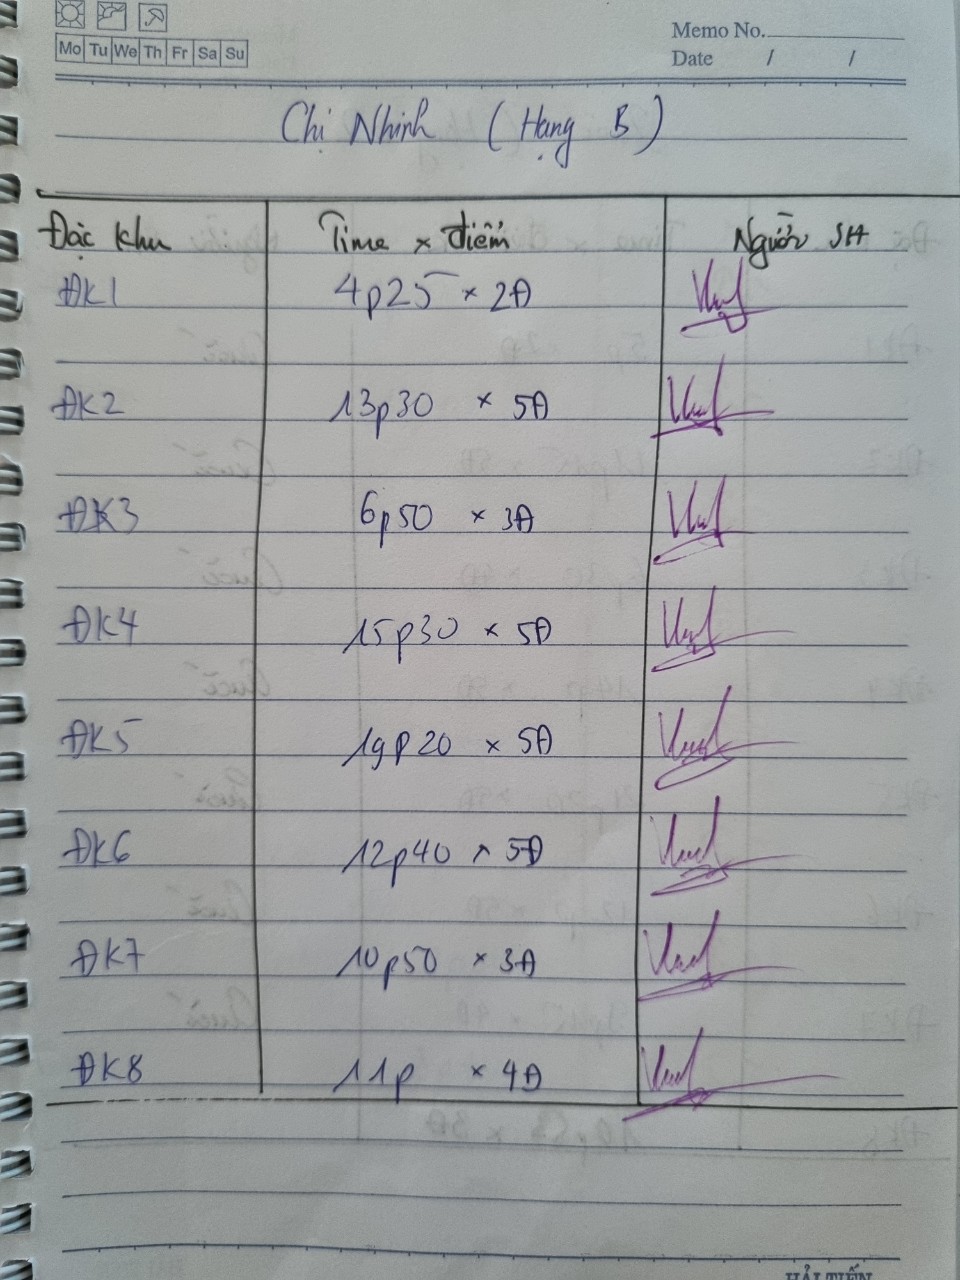 Mo Tu We Th Fr Sa Su
Memo No.
Date / /
Chị Nhinh (Hạng B)
Đặc khu Time x điểm Người SH
ĐK1 4p25 x 2Đ
ĐK2 13p30 x 5Đ
ĐK3 6p50 x 3Đ
ĐK4 15p30 x 5Đ
ĐK5 19p20 x 5Đ
ĐK6 12p40 x 5Đ
ĐK7 10p50 x 3Đ
ĐK8 11p x 4Đ
HẢI TIẾN